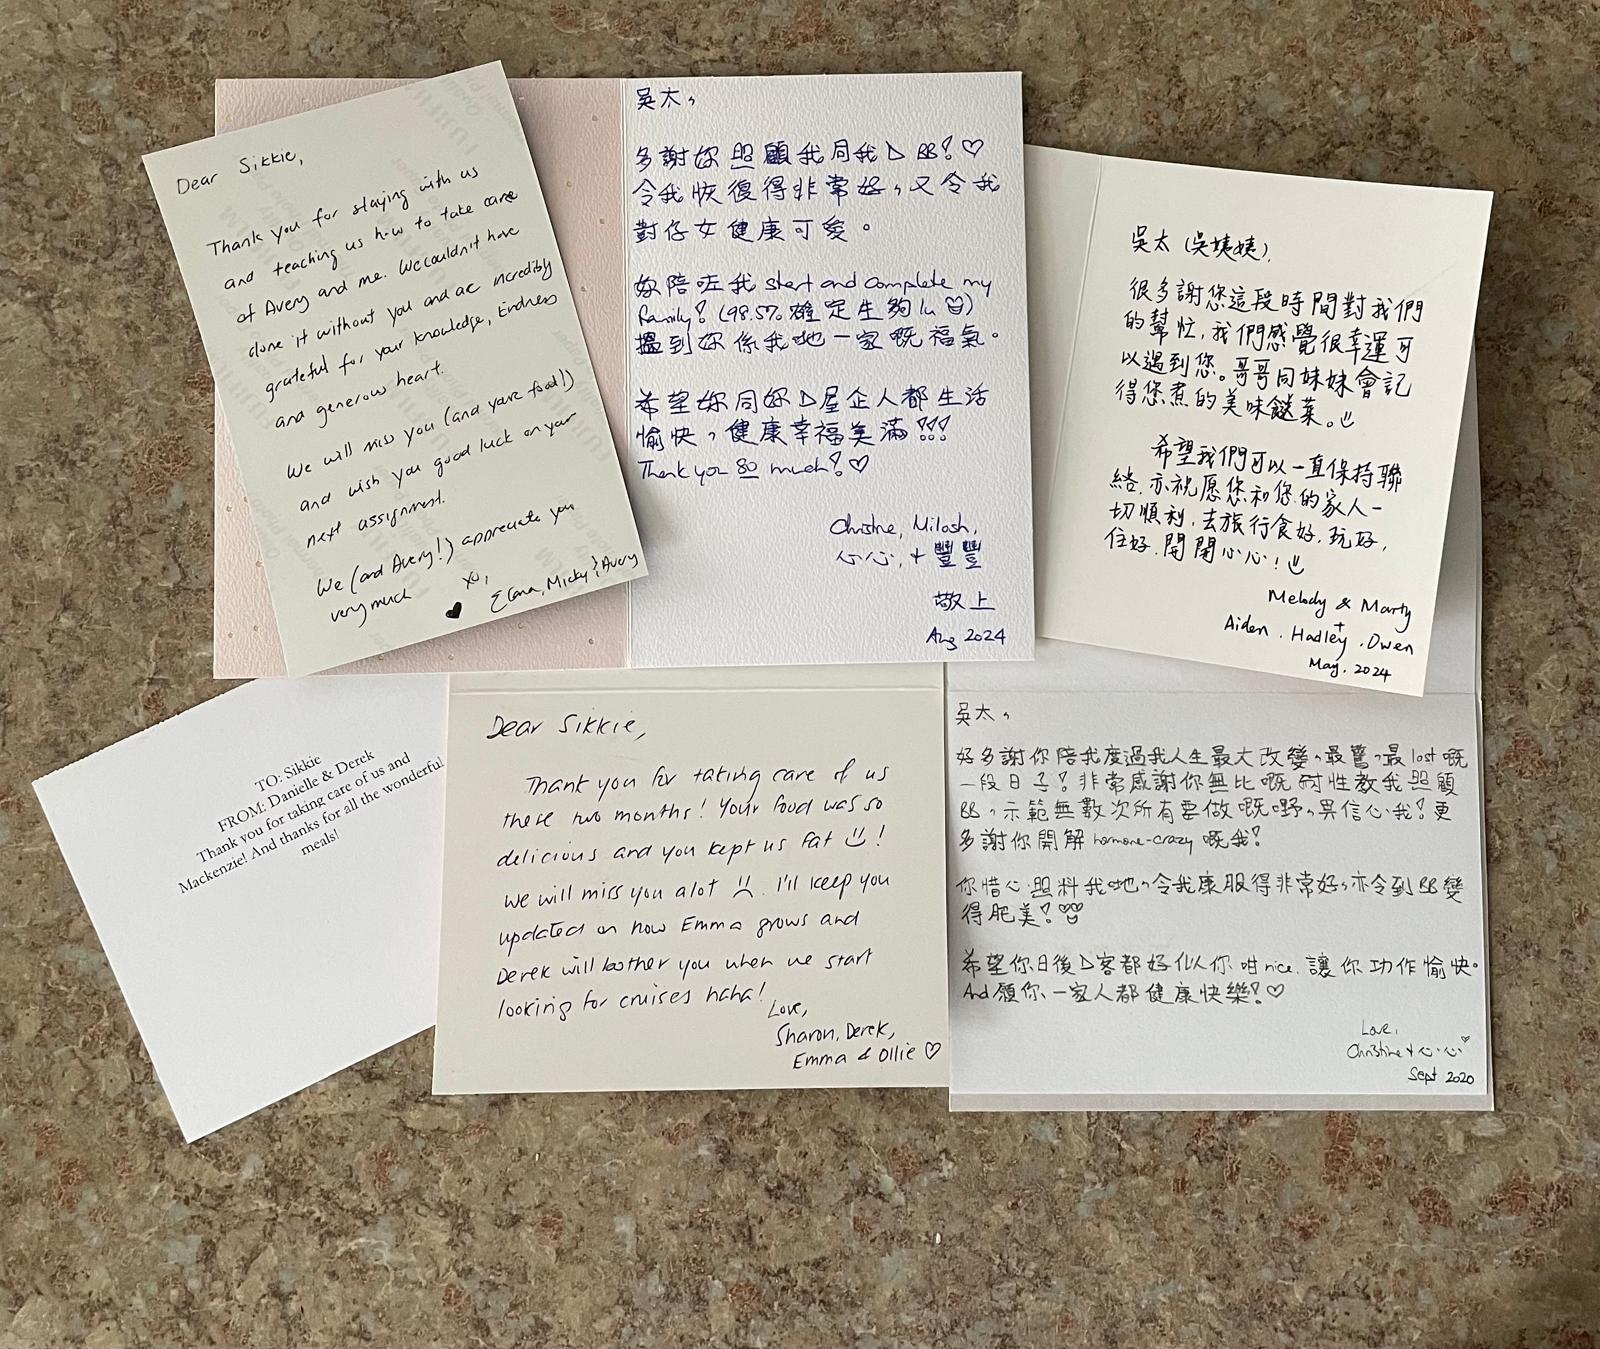 Dear Sikkie,
Thank you for staying with us
and teaching us how to take care
of Avery and me. We couldn't have
done it without you and are incredibly
grateful for your knowledge, kindness
and generous heart.
We will miss you (and your food!)
and wish you good luck on your
next assignment.
We (and Avery!) appreciate you
very much
xo,
Elana, Micky & Avery
吳太,
多謝妳照顧我同我D BB! ♡
令我恢復得非常好,又令我
對仔女健康可愛。
妳陪咗我 start and complete my
family! (98.5% 確定生夠 lu)
搵到妳係我哋一家嘅福氣。
希望妳同妳D屋企人都生活
愉快,健康幸福美滿!!!
Thank you so much! ♡
Christine, Milosh,
心心, + 豐豐
敬上
Aug 2024
吳太 (吳姨姨),
很多謝您這段時間對我們
的幫忙,我們感覺很幸運可
以遇到您。哥哥同妹妹會記
得您煮的美味餸菜。
希望我們可以一直保持聯
絡,亦祝愿您和您的家人一
切順利,去旅行食好,玩好,
住好,開開心心!
Melody & Marty
+
Aiden. Hadley. Owen
May. 2024
TO: Sikkie
FROM: Danielle & Derek
Thank you for taking care of us and
Mackenzie! And thanks for all the wonderful
meals!
Dear Sikkie,
Thank you for taking care of us
these two months! Your food was so
delicious and you kept us fat !
we will miss you alot . I'll keep you
updated on how Emma grows and
Derek will bother you when we start
looking for cruises haha!
Love,
Sharon, Derek,
Emma & Ollie ♡
吳太,
好多謝你陪我度過我人生最大改變,最驚,最 lost 嘅
一段日子!非常感謝你無比嘅耐性教我照顧
BB,示範無數次所有要做嘅嘢,畀信心我!更
多謝你開解 hormone-crazy 嘅我!
你惜心照料我哋,令我康服得非常好,亦令到BB變
得肥美!
希望你日後D客都好似你咁nice,讓你功作愉快。
And 願你一家人都健康快樂!♡
Love,
Christine + 心心
Sept 2020